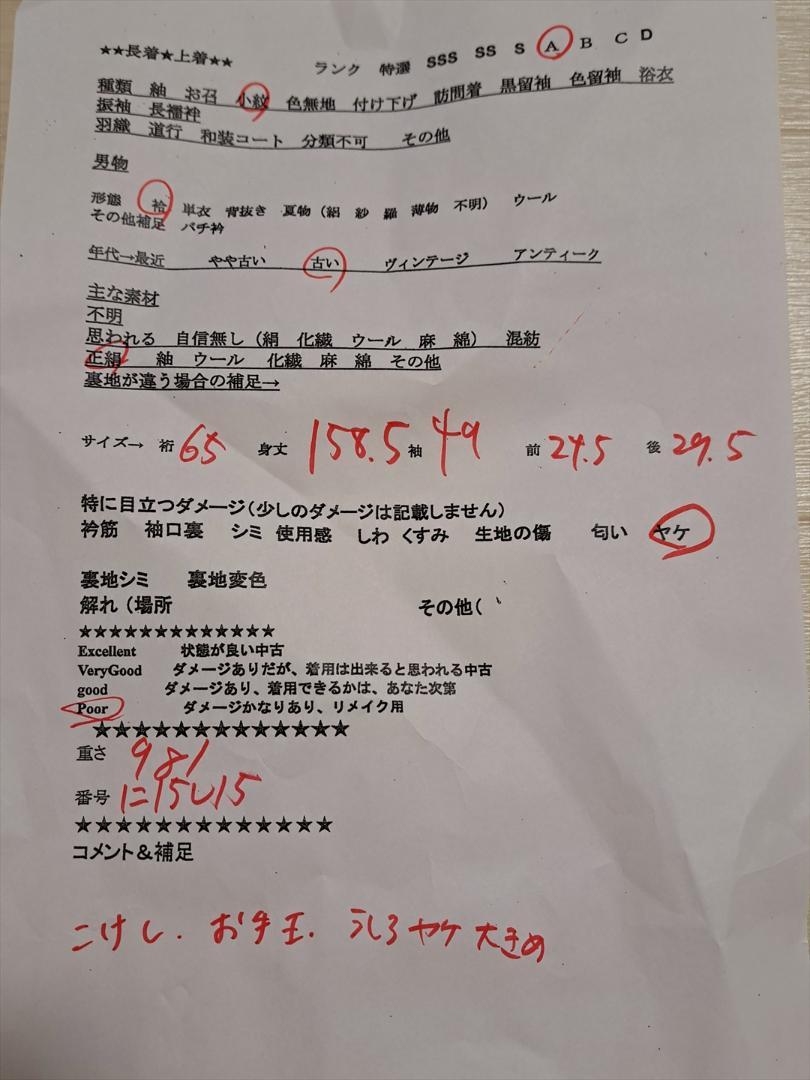 ★★長着★上着★★　ランク　特選　SSS　SS　S　A　B　C　D
種類　紬　お召　小紋　色無地　付け下げ　訪問着　黒留袖　色留袖　浴衣
振袖　長襦袢
羽織　道行　和装コート　分類不可　その他
男物
形態　袷　単衣　背抜き　夏物（絽　紗　羅　薄物　不明）　ウール
その他補足　バチ衿
年代→最近　やや古い　古い　ヴィンテージ　アンティーク
主な素材
不明
思われる　自信無し（絹　化繊　ウール　麻　綿）　混紡
正絹　紬　ウール　化繊　麻　綿　その他
裏地が違う場合の補足→
サイズ→　裄　65　身丈　158.5　袖　49　前　24.5　後　29.5
特に目立つダメージ（少しのダメージは記載しません）
衿筋　袖口裏　シミ　使用感　しわ　くすみ　生地の傷　匂い　ヤケ
裏地シミ　裏地変色
解れ（場所　その他（
★★★★★★★★★★★★★
Excellent　状態が良い中古
VeryGood　ダメージありだが、着用は出来ると思われる中古
good　ダメージあり、着用できるかは、あなた次第
Poor　ダメージかなりあり、リメイク用
★★★★★★★★★★★★★
重さ　981
番号　に15し15
★★★★★★★★★★★★★
コメント＆補足
こけし．お手玉．うしろヤケ大きめ